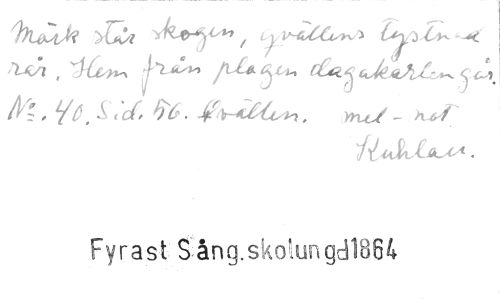 Mörk står skogen, qvällens tystnad
rår. Hem från plogen dagakarlen går.
No. 40. Sid. 56. Qvällen. mel-not
Kuhlau.
Fyrast Sång. skolungd1864